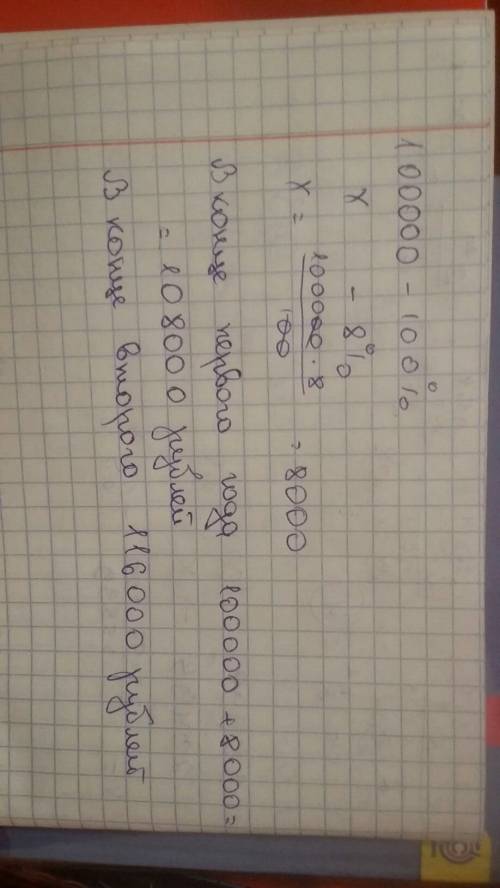 100000 - 100%
x - 8%
x = 100000 · 8 / 100 = 8000
В конце первого года 100000 + 8000 =
= 108000 рублей
В конце второго 116000 рублей